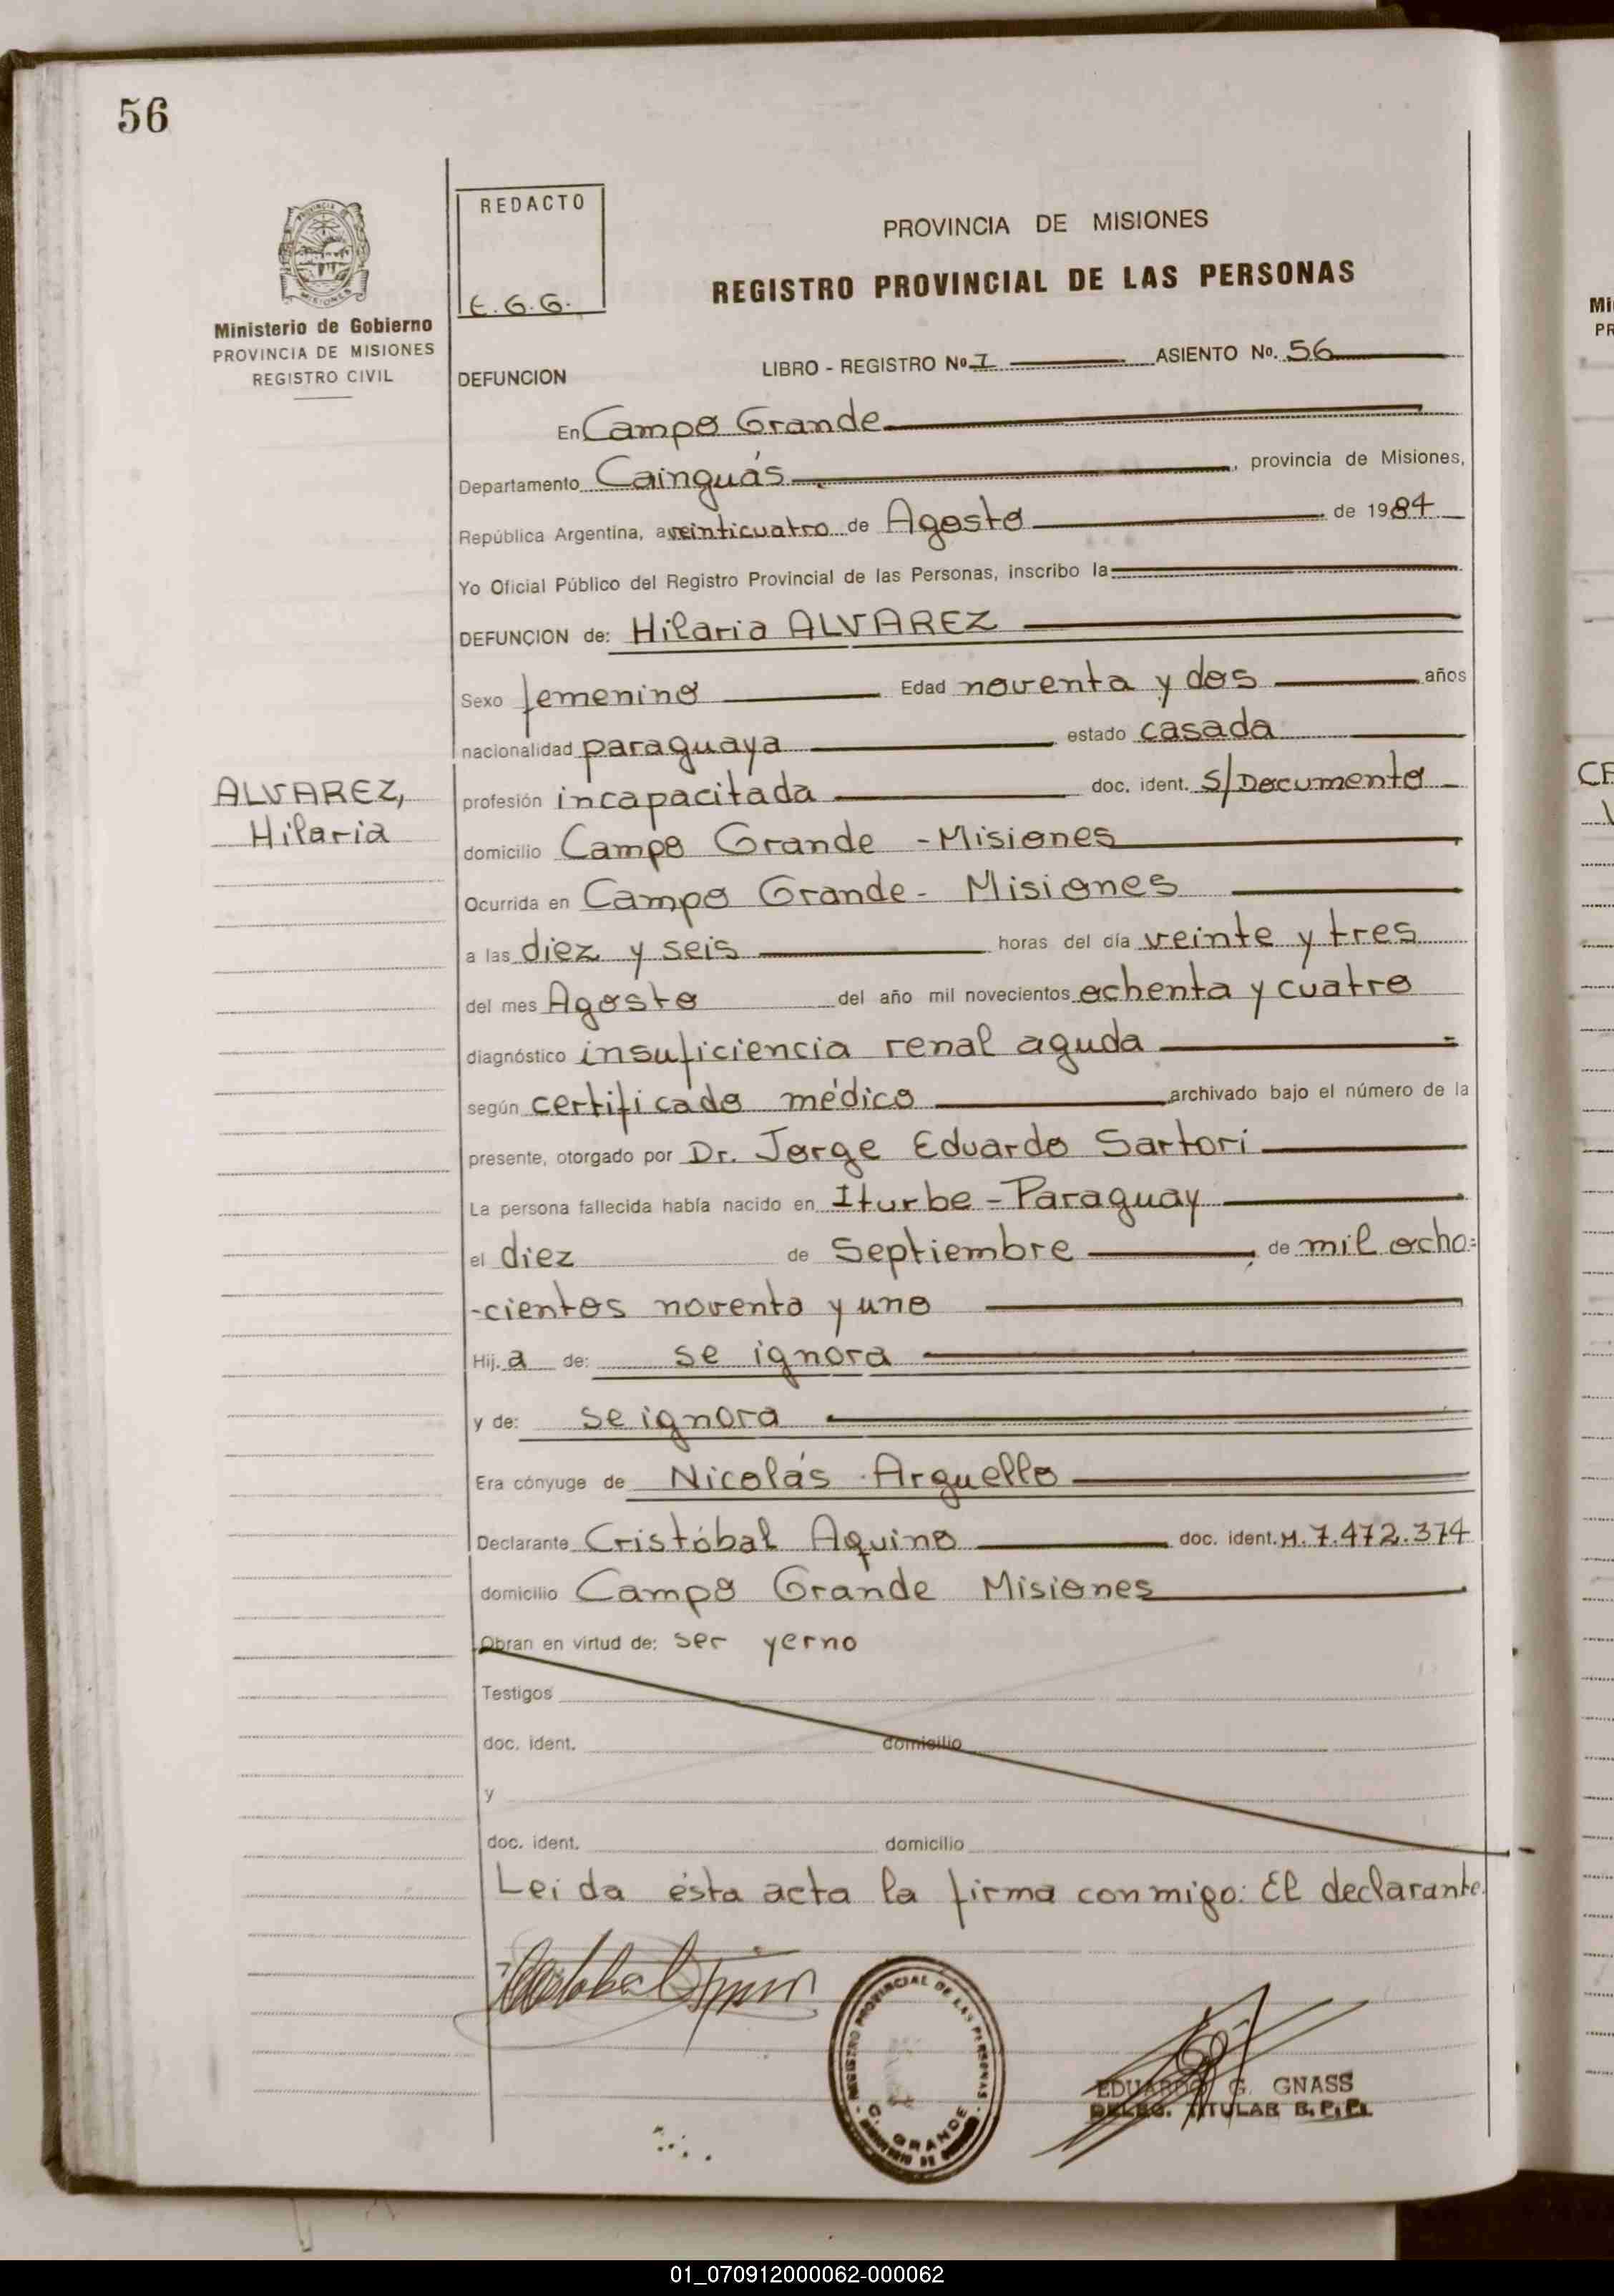 56
REDACTO
E.G.G.
PROVINCIA DE MISIONES
REGISTRO PROVINCIAL DE LAS PERSONAS
Ministerio de Gobierno
PROVINCIA DE MISIONES
REGISTRO CIVIL
DEFUNCION
LIBRO - REGISTRO Nº I ASIENTO Nº. 56
En Campo Grande
Departamento Cainguás, provincia de Misiones,
República Argentina, a veinticuatro de Agosto de 1984
Yo Oficial Público del Registro Provincial de las Personas, inscribo la
DEFUNCION de: Hilaria ALVAREZ
Sexo femenino Edad noventa y dos años
nacionalidad paraguaya estado casada
ALVAREZ,
Hilaria
profesión incapacitada doc. ident. S/Documento
domicilio Campo Grande - Misiones
Ocurrida en Campo Grande - Misiones
a las diez y seis horas del día veinte y tres
del mes Agosto del año mil novecientos ochenta y cuatro
diagnóstico insuficiencia renal aguda
según certificado médico archivado bajo el número de la
presente, otorgado por Dr. Jorge Eduardo Sartori
La persona fallecida había nacido en Iturbe - Paraguay
el diez de Septiembre de mil ocho=
-cientos noventa y uno
Hij.a de: se ignora
y de: se ignora
Era cónyuge de Nicolás Arguello
Declarante Cristóbal Aquino doc. ident. M. 7.472.374
domicilio Campo Grande Misiones
Obran en virtud de: ser yerno
Testigos
doc. ident. domicilio
y
doc. ident. domicilio
Leida ésta acta la firma conmigo: El declarante.
REGISTRO PROVINCIAL DE LAS PERSONAS
C. GRANDE
EDUARDO G. GNASS
DELEG. TITULAR R.P.P.
Mi
PR
CF
01_070912000062-000062